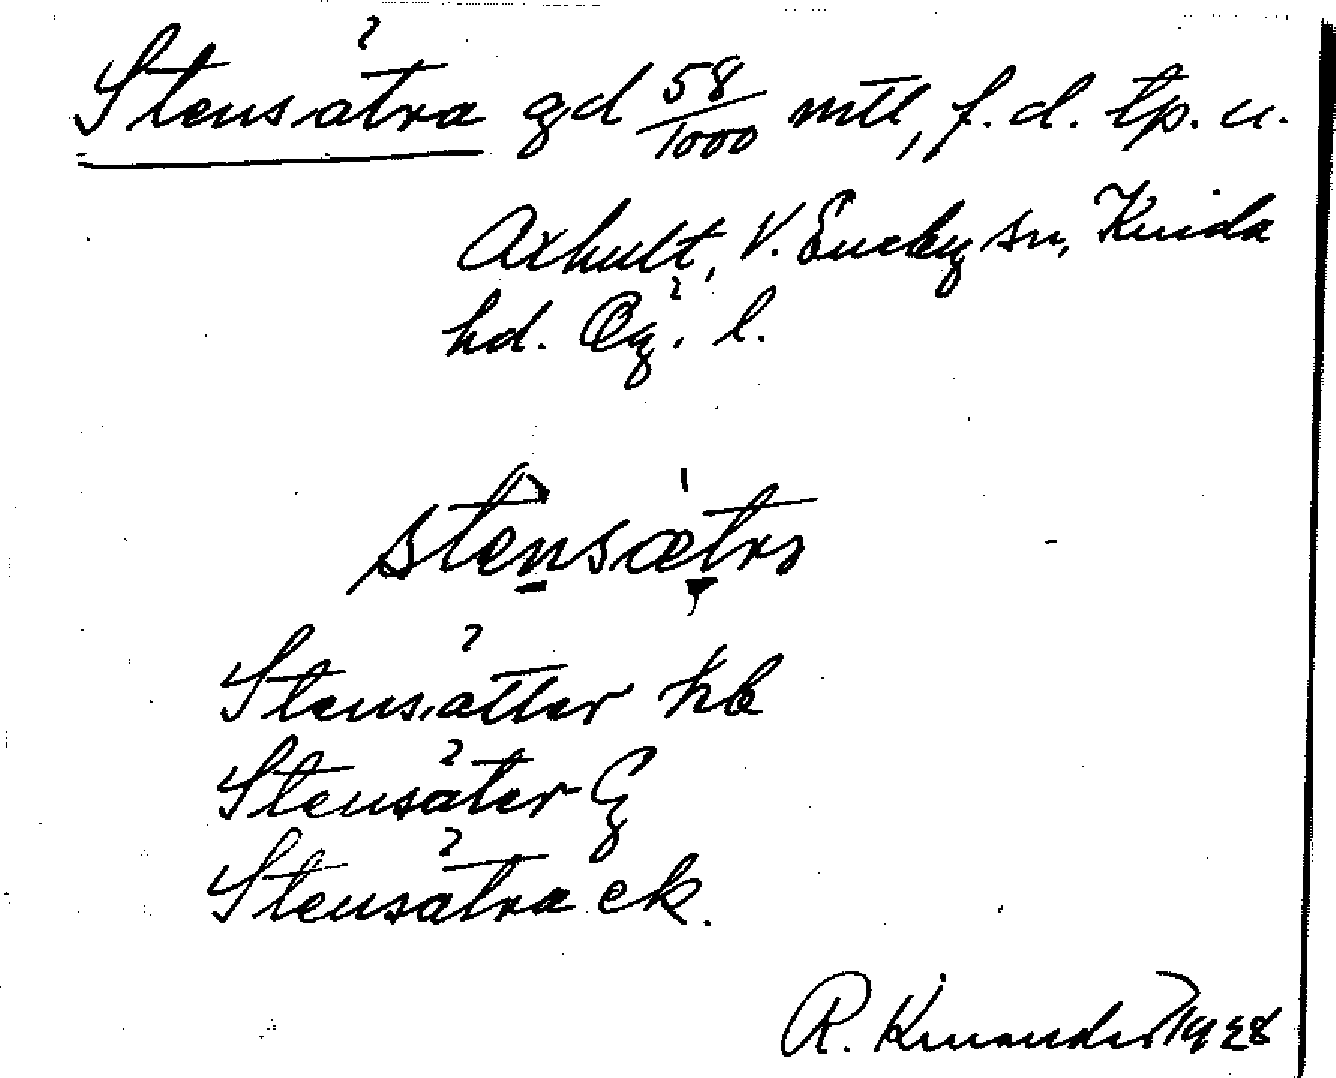 Stensätra gd 58/1000 mtl, f.d. tp. u.
Axhult, V. Eneby sn, Kinda
hd. Ög. l.
stensætra
Stensätter kb
Stensäter G
Stensätra ek.
R. Kinander 1928